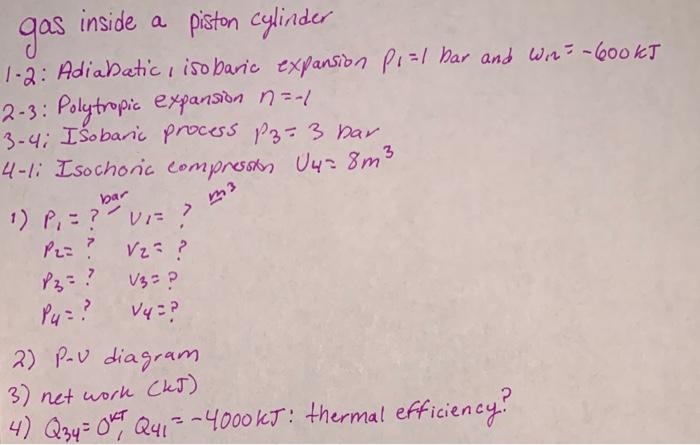 gas inside a piston cylinder
1-2: Adiabatic, isobaric expansion P1=1 bar and W12=-600kJ
2-3: Polytropic expansion n=-1
3-4; Isobaric process P3=3 bar
4-1; Isochoric compression V4=8m³
bar m³
1) P1=? V1=?
P2=? V2=?
P3=? V3=?
P4=? V4=?
2) P-V diagram
3) net work (kJ)
4) Q34=0kJ, Q41=-4000kJ: thermal efficiency?